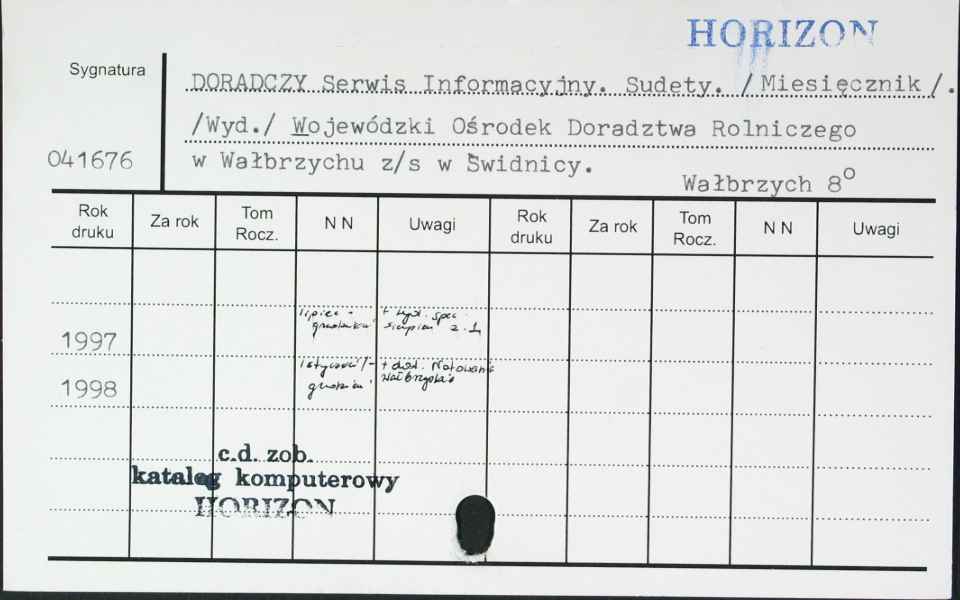 HORIZON
Sygnatura
DORADCZY Serwis Informacyjny. Sudety. /Miesięcznik/.
/Wyd./ Wojewódzki Ośrodek Doradztwa Rolniczego
041676
w Wałbrzychu z/s w Świdnicy.
Wałbrzych 8°
Rok druku Za rok Tom Rocz. N N Uwagi Rok druku Za rok Tom Rocz. N N Uwagi
lipiec - + wyd. spec.
1997 grudzień sierpień z. 1
/styczeń/- + dod. Notowania
1998 grudzień Wałbrzyskie
c.d. zob.
katalog komputerowy
HORIZON